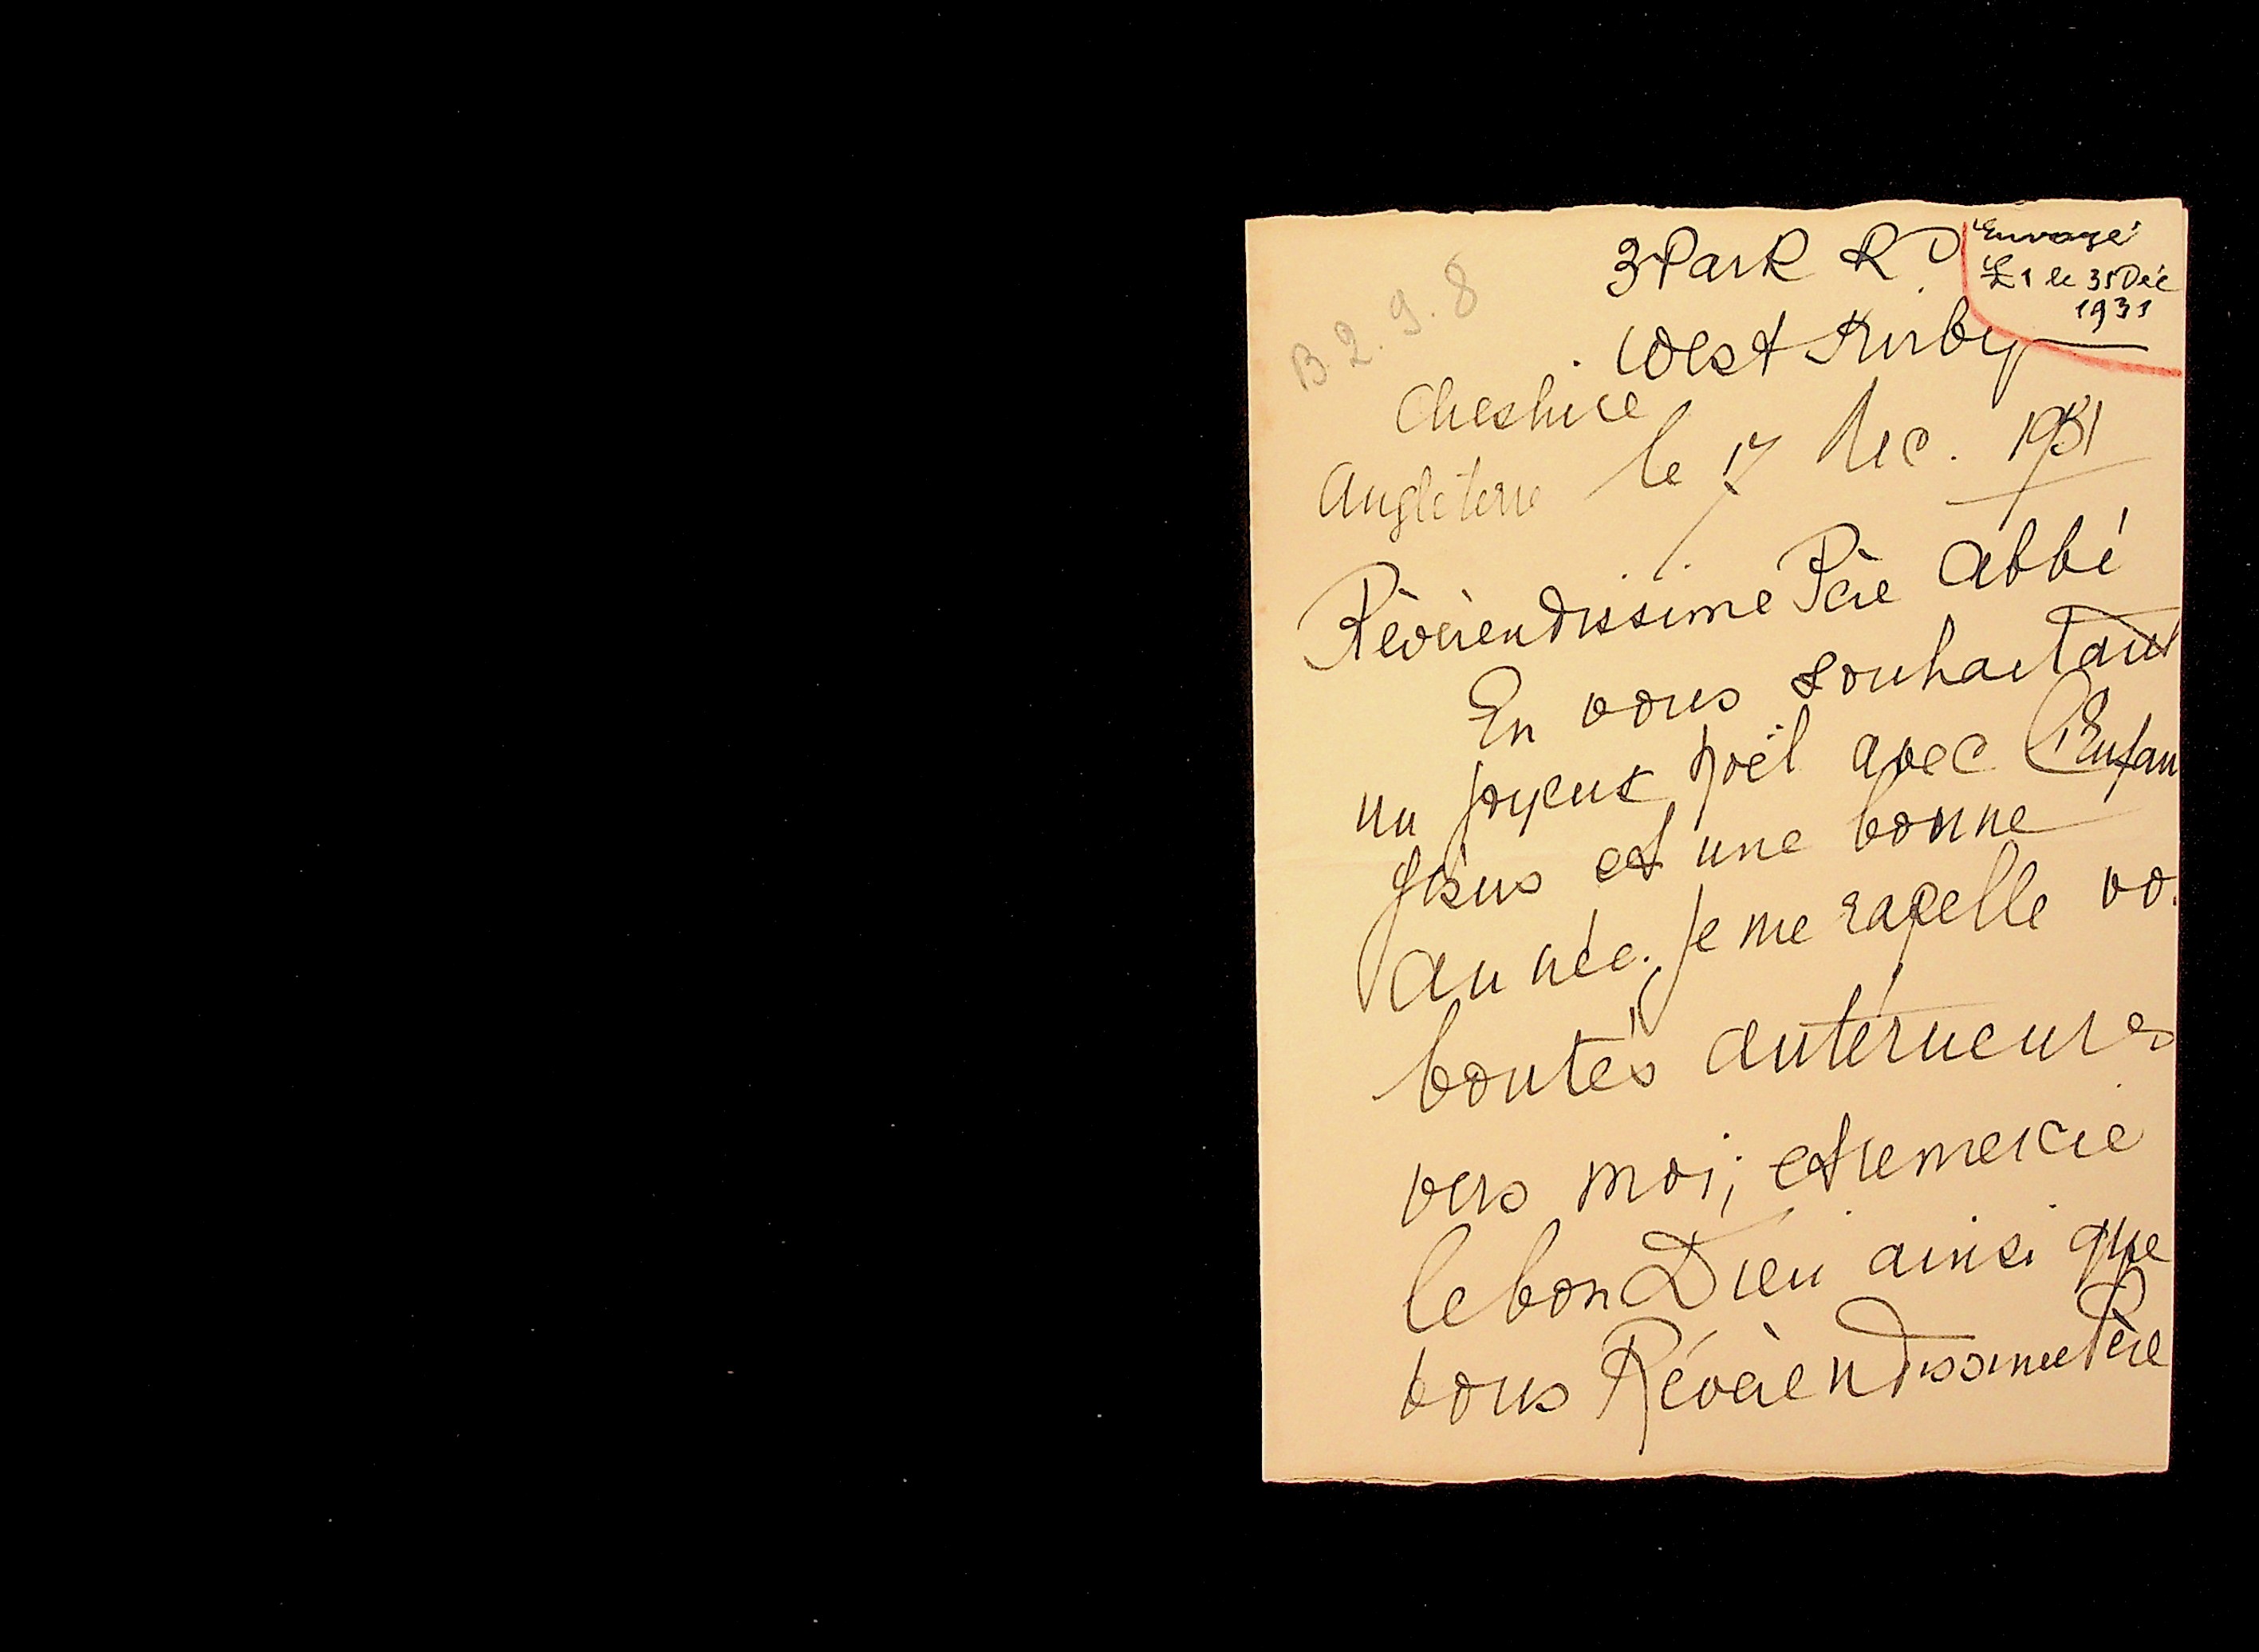 B. 2. 9. 8
3 Park Rd.
Envoyé
£1 le 31 Déc
1931
West Kirby
Cheshire
Angleterre le 17 Dec. 1931
Révèrendissime Père Abbé
En vous souhaitant
un joyeux Noël avec l'Enfan
Jésus et une bonne
année. Je me rapelle vo.
bontés anterieures
vers moi; et remercie
le bon Dieu ainsi que
vous Révèrendissime Père